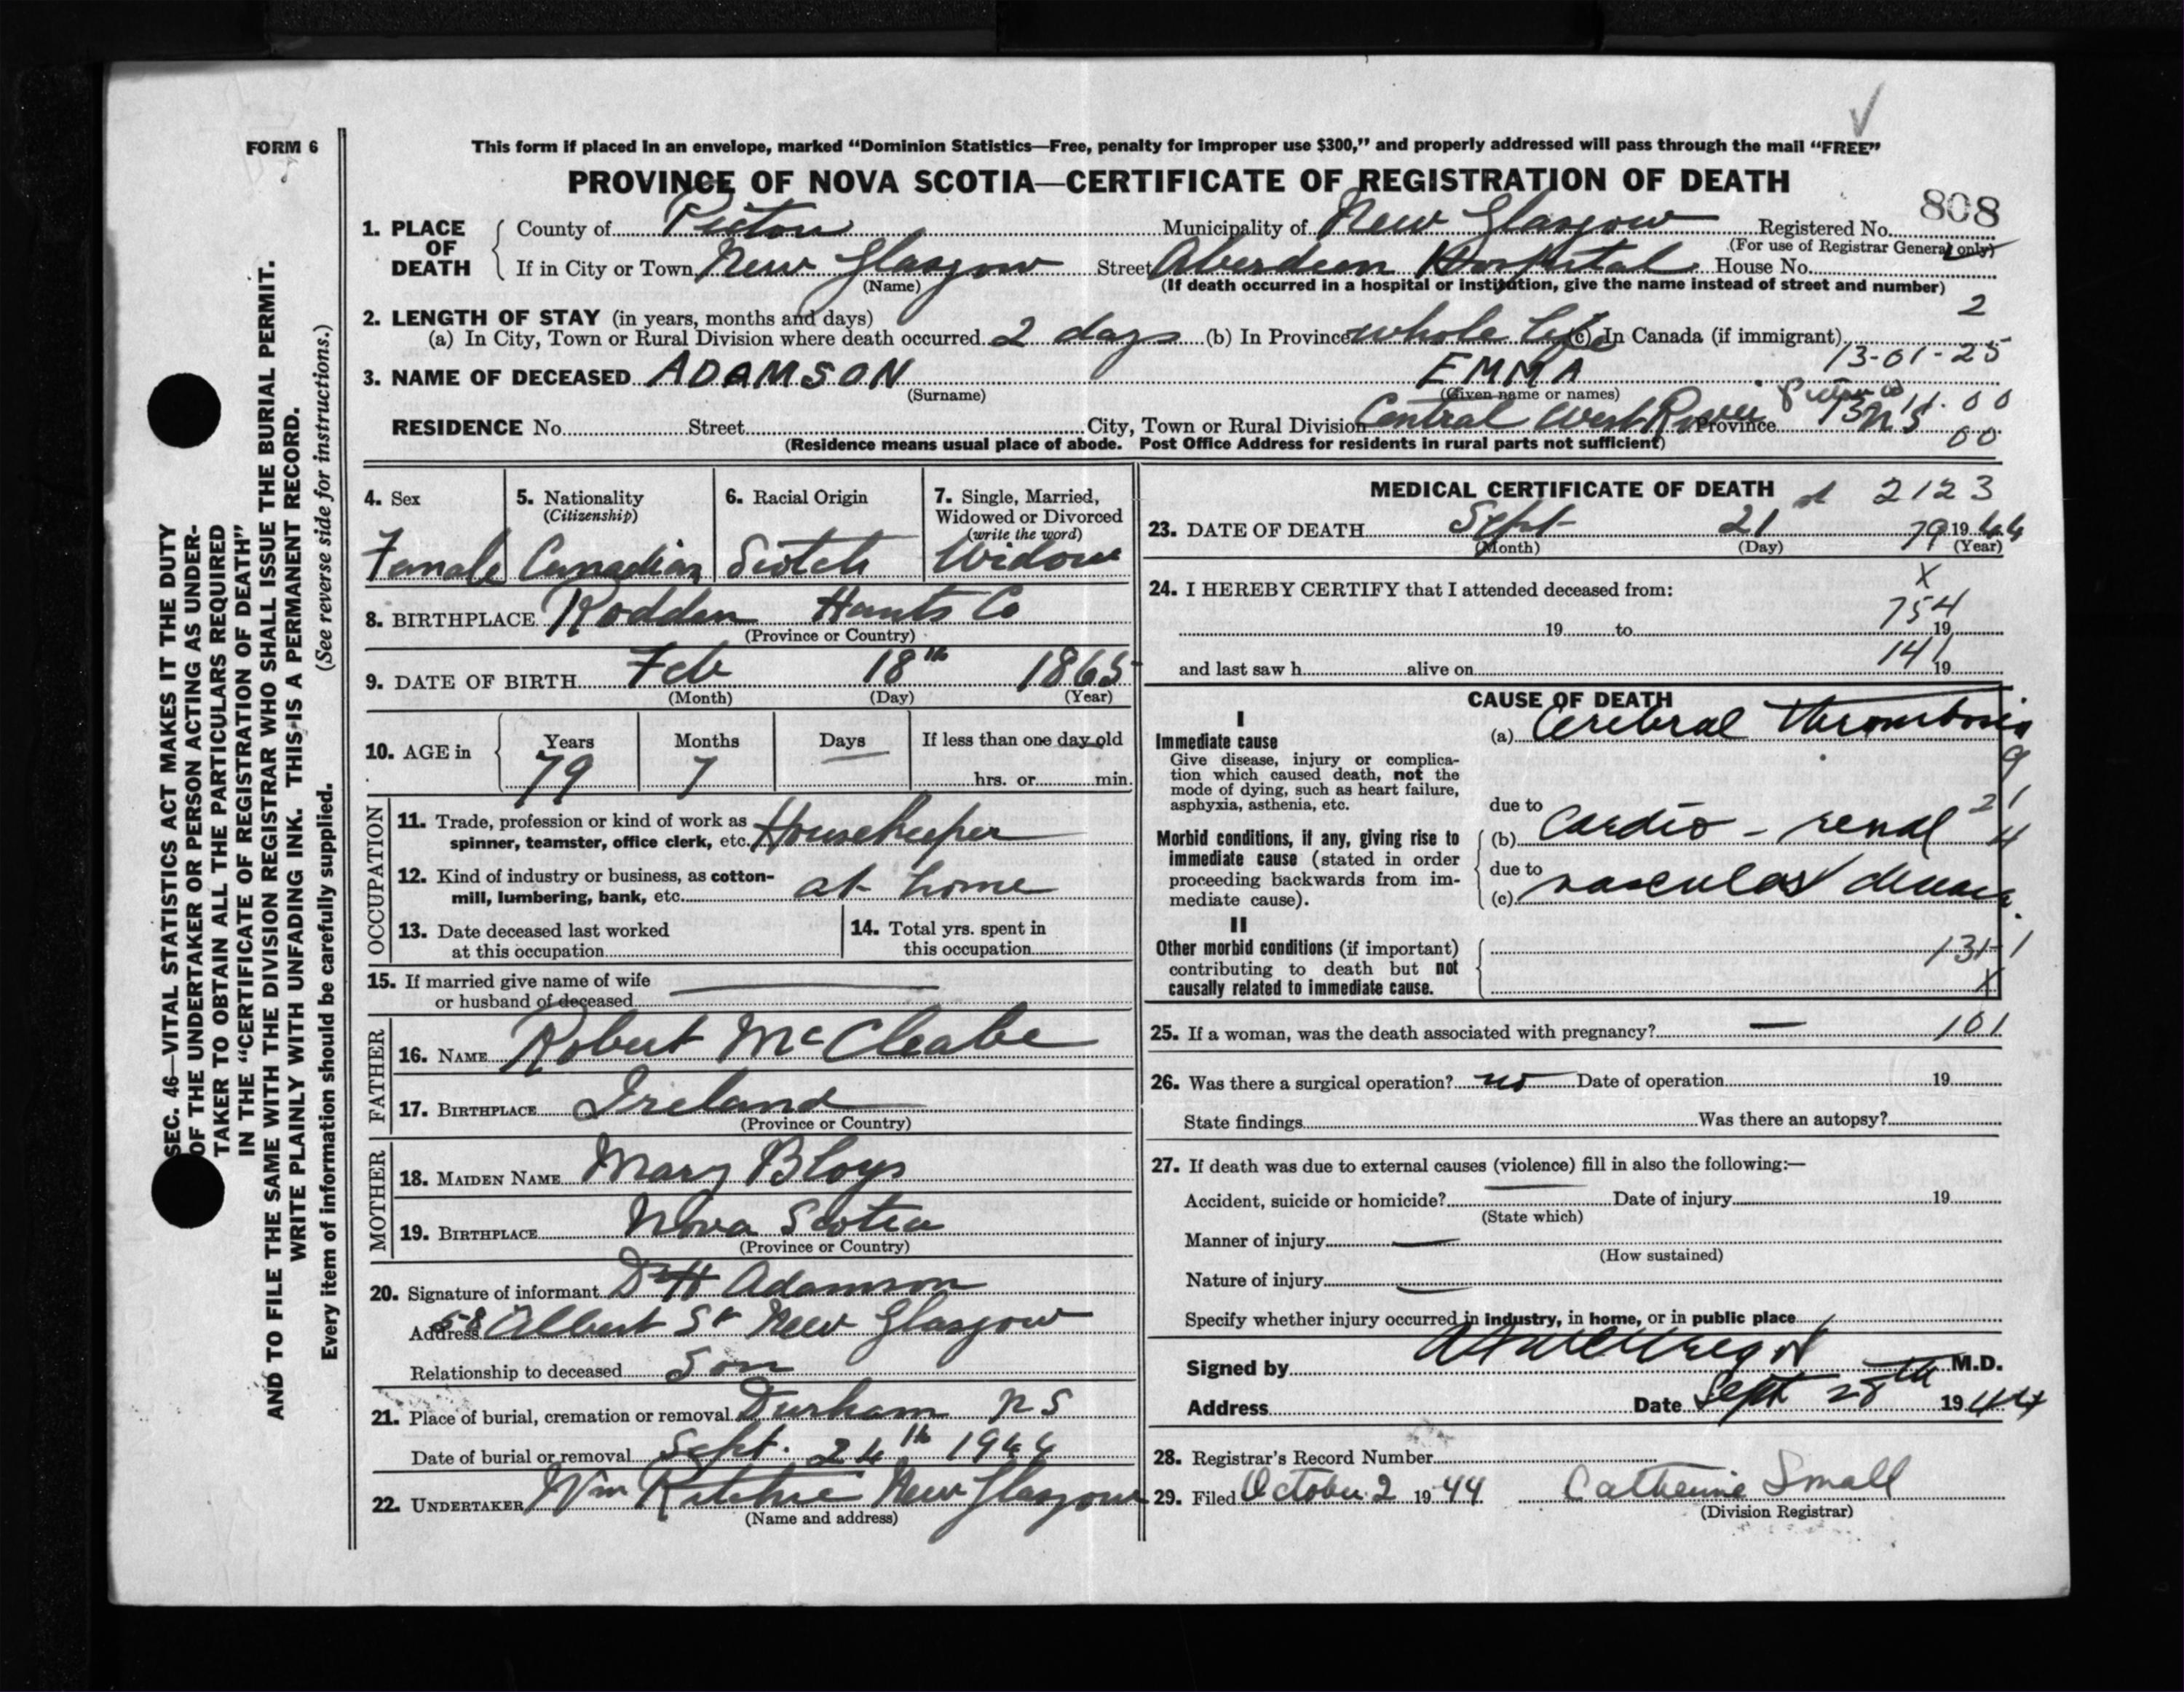 FORM 6
This form if placed in an envelope, marked "Dominion Statistics—Free, penalty for improper use $300," and properly addressed will pass through the mail "FREE"
PROVINCE OF NOVA SCOTIA—CERTIFICATE OF REGISTRATION OF DEATH
808
1. PLACE OF DEATH
County of Pictou Municipality of New Glasgow Registered No.
(For use of Registrar General only)
If in City or Town New Glasgow Street Aberdeen Hospital House No.
(Name) (If death occurred in a hospital or institution, give the name instead of street and number)
2
2. LENGTH OF STAY (in years, months and days)
(a) In City, Town or Rural Division where death occurred 2 days (b) In Province whole life (c) In Canada (if immigrant)
13-01-25
3. NAME OF DECEASED ADAMSON EMMA
(Surname) (Given name or names)
RESIDENCE No. Street City, Town or Rural Division Central West River Pictou Co Province N S
13 11-00
00
(Residence means usual place of abode. Post Office Address for residents in rural parts not sufficient)
4. Sex 5. Nationality 6. Racial Origin 7. Single, Married,
(Citizenship) Widowed or Divorced
(write the word)
Female Canadian Scotch Widow
8. BIRTHPLACE Hants Co
(Province or Country)
9. DATE OF BIRTH Feb 18th 1865
(Month) (Day) (Year)
10. AGE in Years Months Days If less than one day old
79 7 — hrs. or min.
OCCUPATION
11. Trade, profession or kind of work as
spinner, teamster, office clerk, etc. Housekeeper
12. Kind of industry or business, as cotton-
mill, lumbering, bank, etc. at home
13. Date deceased last worked
at this occupation
14. Total yrs. spent in
this occupation
15. If married give name of wife
or husband of deceased —
FATHER
16. NAME Robert McCleabe
17. BIRTHPLACE Ireland
(Province or Country)
MOTHER
18. MAIDEN NAME Mary Bloys
19. BIRTHPLACE Nova Scotia
(Province or Country)
20. Signature of informant Adamson
Address 58 Albert St New Glasgow
Relationship to deceased Son
21. Place of burial, cremation or removal Durham N S
Date of burial or removal Sept. 24th 1944
22. UNDERTAKER Wm Ritchie New Glasgow
(Name and address)
MEDICAL CERTIFICATE OF DEATH 2123
23. DATE OF DEATH Sept 21 79 1944
(Month) (Day) (Year)
24. I HEREBY CERTIFY that I attended deceased from:
X
754
19 to 19
141
and last saw h alive on 19
CAUSE OF DEATH
I
Immediate cause
Give disease, injury or complica-
tion which caused death, not the
mode of dying, such as heart failure,
asphyxia, asthenia, etc.
(a) Cerebral thrombosis
9
21
4
due to
Morbid conditions, if any, giving rise to
immediate cause (stated in order
proceeding backwards from im-
mediate cause).
(b) Cardio - renal
due to
(c) vascular disease.
II
Other morbid conditions (if important)
contributing to death but not
causally related to immediate cause.
131-1
X
25. If a woman, was the death associated with pregnancy? — 101
26. Was there a surgical operation? no Date of operation 19
State findings Was there an autopsy?
27. If death was due to external causes (violence) fill in also the following:—
Accident, suicide or homicide? — Date of injury 19
(State which)
Manner of injury —
(How sustained)
Nature of injury —
Specify whether injury occurred in industry, in home, or in public place
Signed by M.D.
Address Date Sept 28th 1944
28. Registrar's Record Number
29. Filed October 2 1944 Catherine Small
(Division Registrar)
SEC. 46—VITAL STATISTICS ACT MAKES IT THE DUTY
OF THE UNDERTAKER OR PERSON ACTING AS UNDER-
TAKER TO OBTAIN ALL THE PARTICULARS REQUIRED
IN THE "CERTIFICATE OF REGISTRATION OF DEATH"
AND TO FILE THE SAME WITH THE DIVISION REGISTRAR WHO SHALL ISSUE THE BURIAL PERMIT.
WRITE PLAINLY WITH UNFADING INK. THIS IS A PERMANENT RECORD.
Every item of information should be carefully supplied. (See reverse side for instructions.)